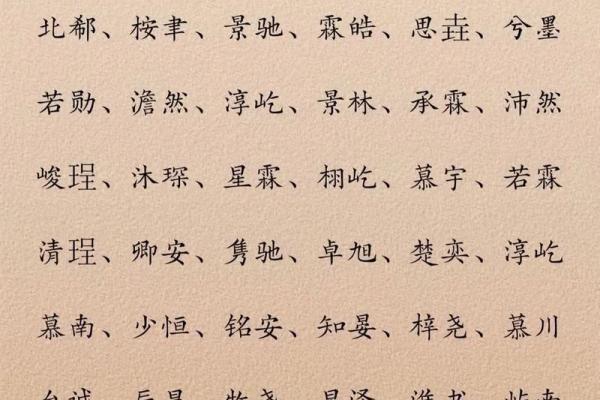 北郗、桉聿、景驰、霖皓、思壵、兮墨
若勋、澹然、淳屹、景林、承霖、沛然
峻珵、沐琛、星霖、栩屹、慕宇、若霖
清珵、卿安、隽驰、卓旭、楚奕、淳屹
慕南、少恒、铭安、知晏、梓尧、慕川